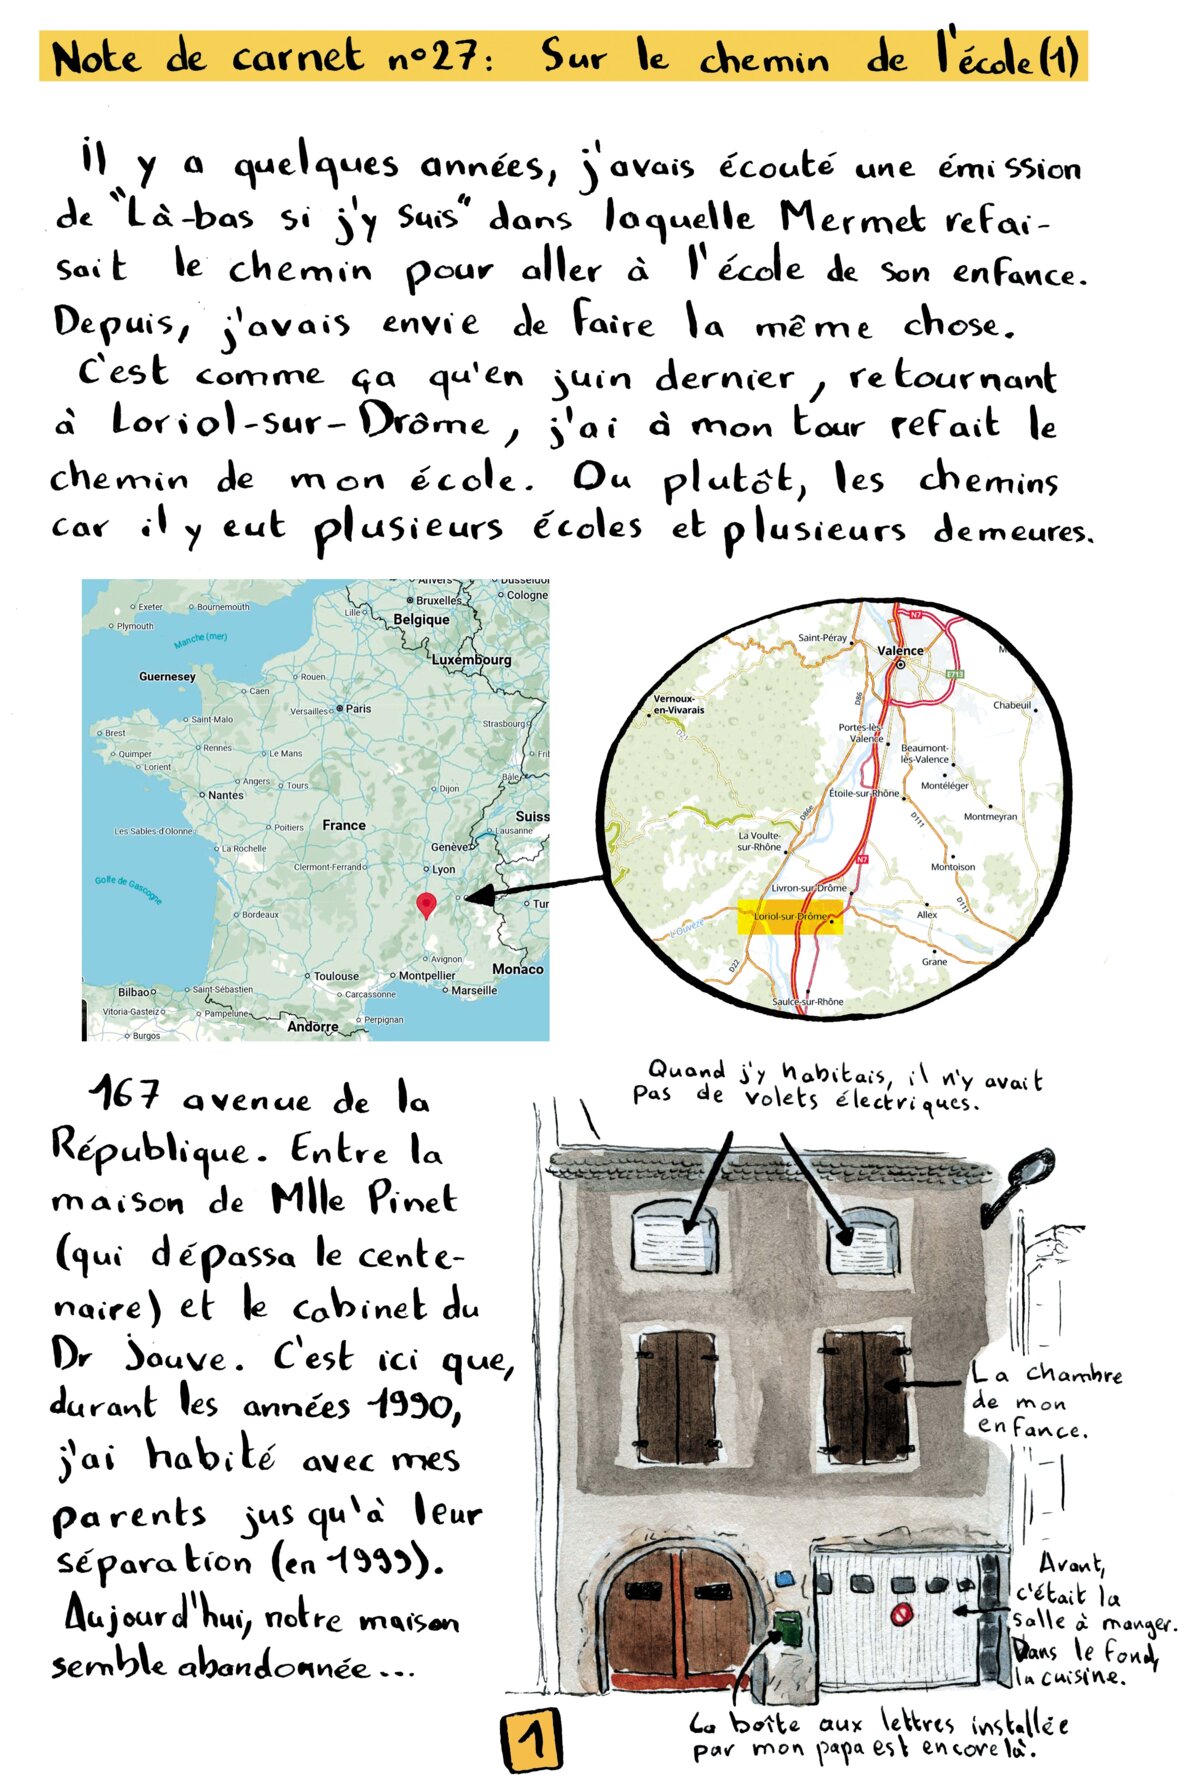 Note de carnet n°27: Sur le chemin de l'école (1)
Il y a quelques années, j'avais écouté une émission
de "Là-bas si j'y suis" dans laquelle Mermet refai-
sait le chemin pour aller à l'école de son enfance.
Depuis, j'avais envie de faire la même chose.
C'est comme ça qu'en juin dernier, retournant
à Loriol-sur-Drôme, j'ai à mon tour refait le
chemin de mon école. Ou plutôt, les chemins
car il y eut plusieurs écoles et plusieurs demeures.
Anvers
Düsseldorf
Exeter
Bournemouth
Lille
Bruxelles
Cologne
Plymouth
Belgique
Manche (mer)
Luxembourg
Guernesey
Rouen
Caen
Versailles
Paris
Saint-Malo
Strasbourg
Brest
Rennes
Le Mans
Quimper
Lorient
Angers
Tours
Bâle
Nantes
Dijon
Suiss
Les Sables-d'Olonne
Poitiers
France
Lausanne
La Rochelle
Genève
Clermont-Ferrand
Lyon
Golfe de Gascogne
Bordeaux
Tur
Avignon
Toulouse
Montpellier
Monaco
Bilbao
Saint-Sébastien
Carcassonne
Marseille
Vitoria-Gasteiz
Pampelune
Perpignan
Andorre
Burgos
N7
Saint-Péray
Valence
M
E713
D86
Vernoux-
en-Vivarais
Chabeuil
D21
Portes-lès-
Valence
Beaumont-
lès-Valence
Montéléger
Étoile-sur-Rhône
D86e
D111
Montmeyran
La Voulte-
sur-Rhône
N7
Montoison
Livron-sur-Drôme
D111
Loriol-sur-Drôme
Allex
L'Ouvèze
D22
Grane
Saulce-sur-Rhône
167 avenue de la
République. Entre la
maison de Mlle Pinet
(qui dépassa le cente-
naire) et le cabinet du
Dr Jouve. C'est ici que,
durant les années 1990,
j'ai habité avec mes
parents jusqu'à leur
séparation (en 1999).
Aujourd'hui, notre maison
semble abandonnée...
Quand j'y habitais, il n'y avait
pas de volets électriques.
La chambre
de mon
enfance.
Avant,
c'était la
salle à manger.
Dans le fond,
la cuisine.
La boîte aux lettres installée
par mon papa est encore là.
1